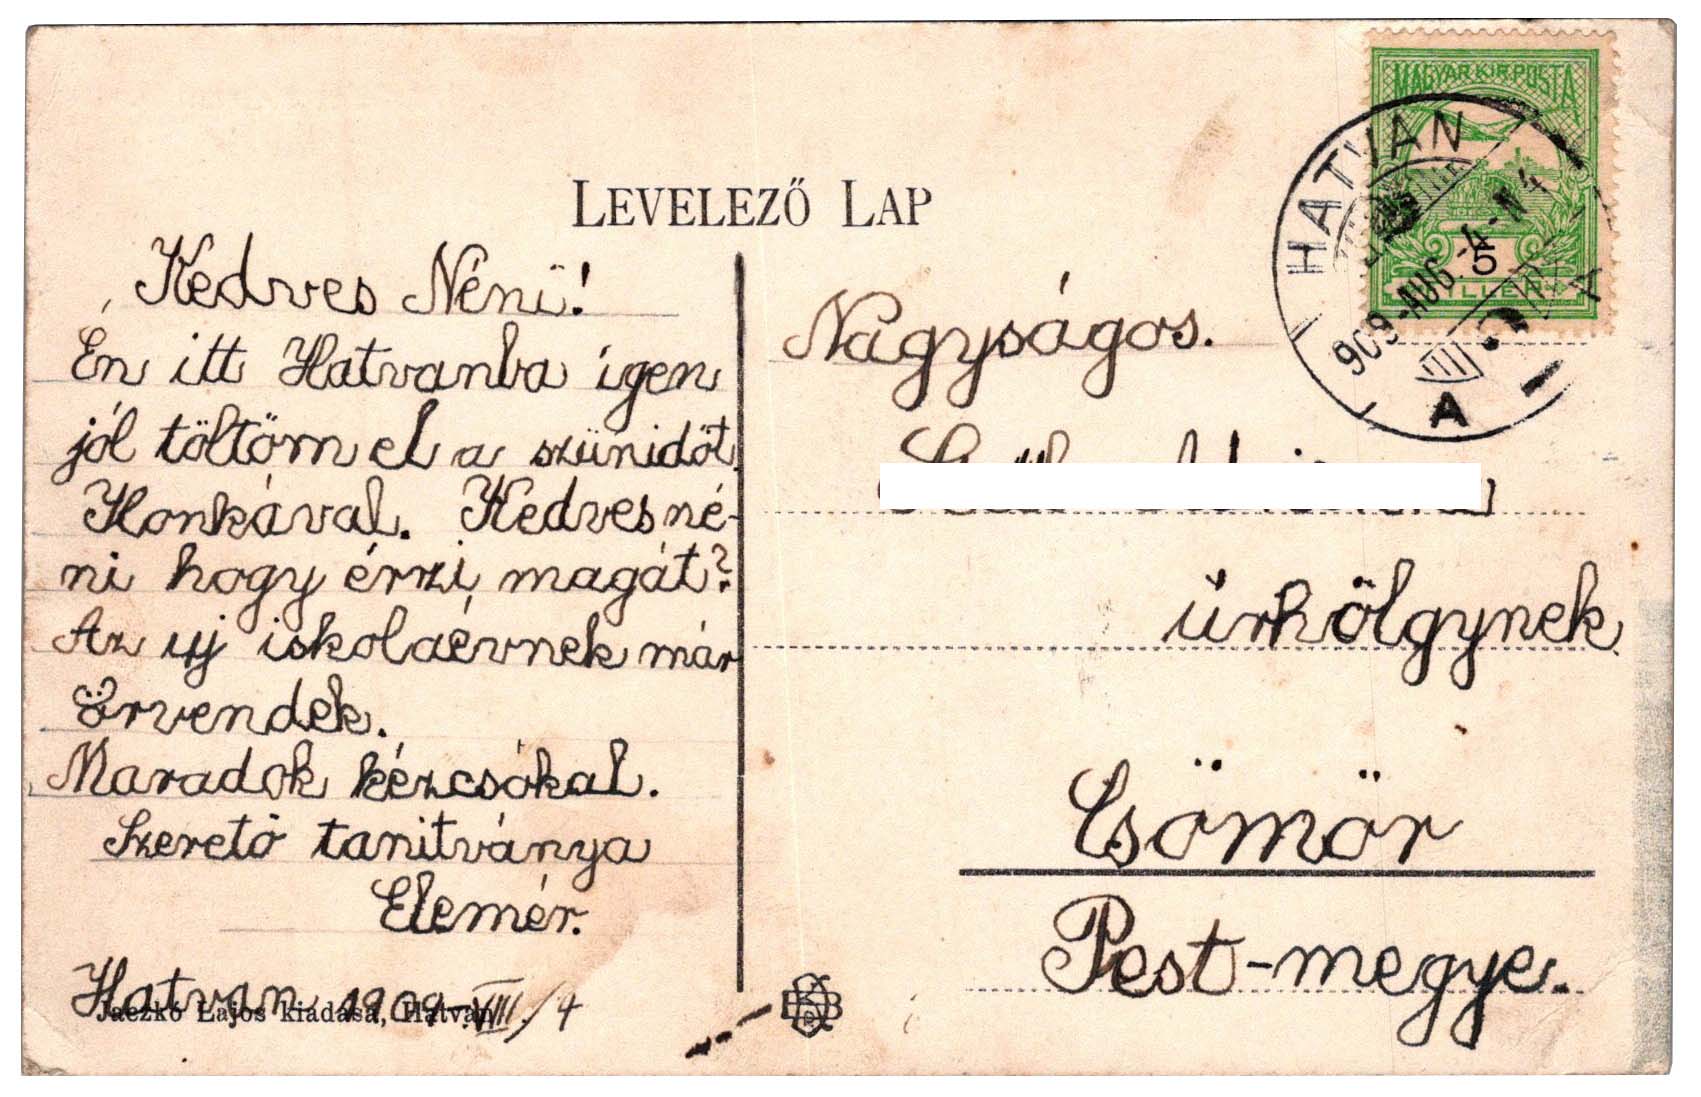 LEVELEZŐ LAP
Kedves Néni!
Én itt Hatvanba igen
jól töltöm el a szünidőt
Ilonkával. Kedves né-
ni hogy érzi magát?
Az uj iskolaévnek már
örvendek.
Maradok kézcsókal.
Szerető tanitványa
Elemér.
Hatvan 1909 VIII/4
Jaczkó Lajos kiadása, Hatvan
Nagyságos.
úrhölgynek
Csömör
Pest-megye.
MAGYAR KIR. POSTA
5
HATVAN
909-AUG-4-N4
A